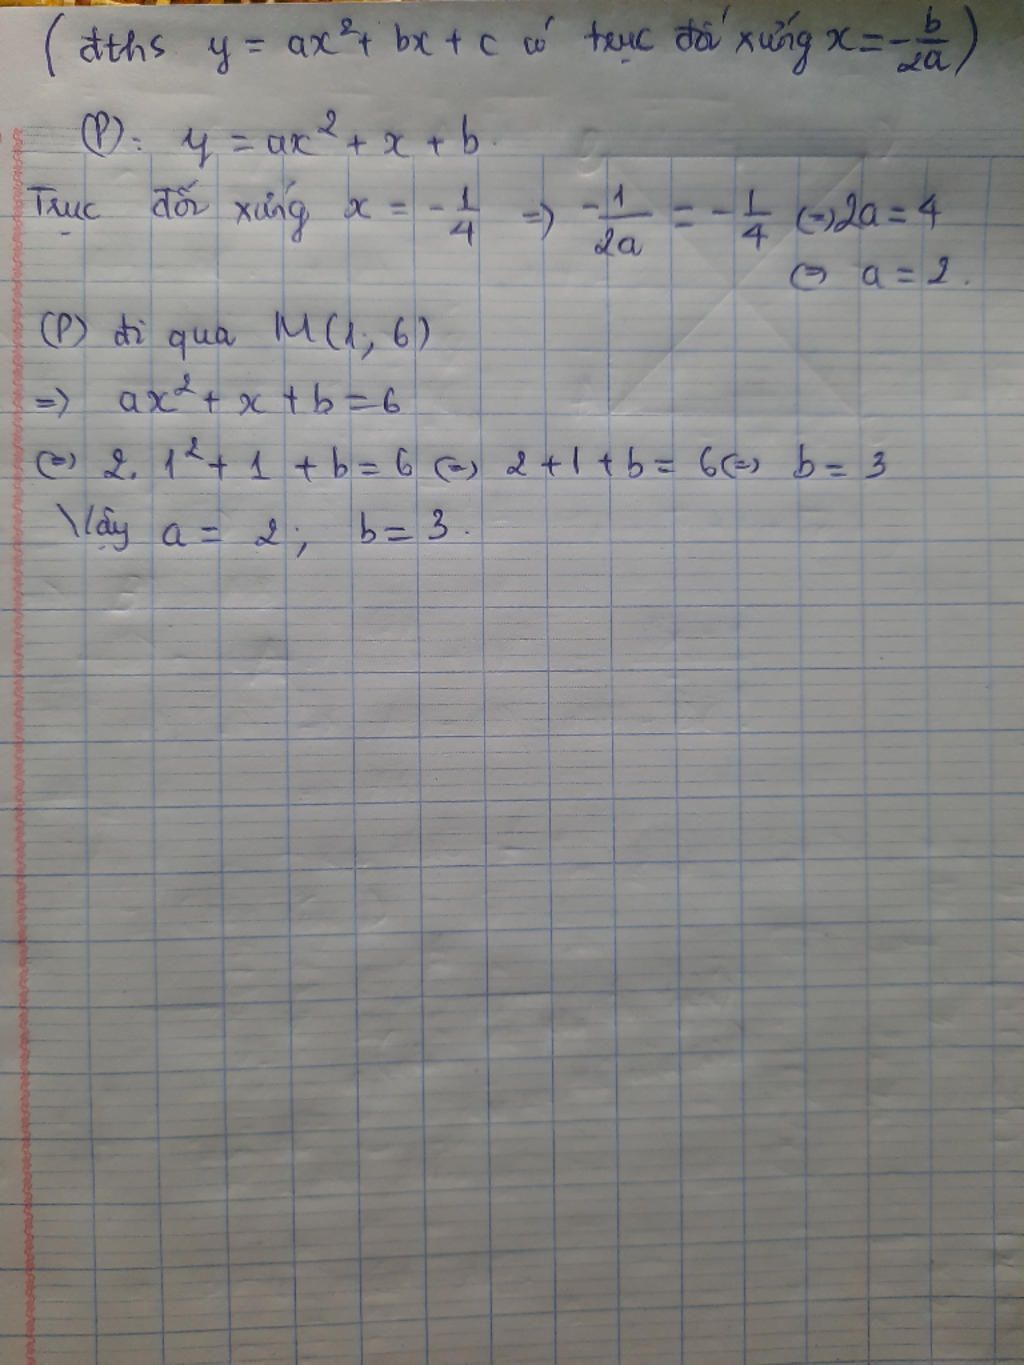 (đths y = ax² + bx + c có trục đối xứng x = -b/2a)
(P): y = ax² + x + b.
Trục đối xứng x = -1/4 => -1/2a = -1/4 (=) 2a = 4
(=) a = 2.
(P) đi qua M(1; 6)
=> ax² + x + b = 6
(=) 2. 1² + 1 + b = 6 (=) 2 + 1 + b = 6 (=) b = 3
Vậy a = 2; b = 3.